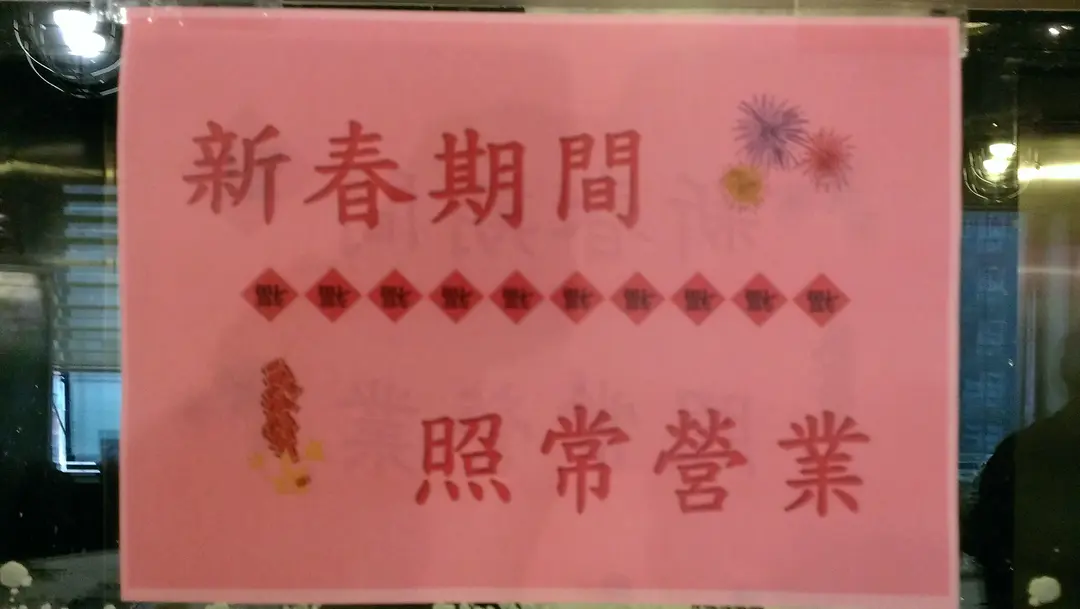 新春期間
照常營業